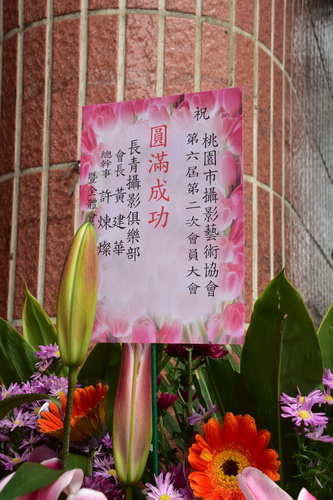 祝
桃園市攝影藝術協會
第六屆第二次會員大會
圓滿成功
長青攝影俱樂部
會長 黃建華
總幹事 許煉燦
暨全體會